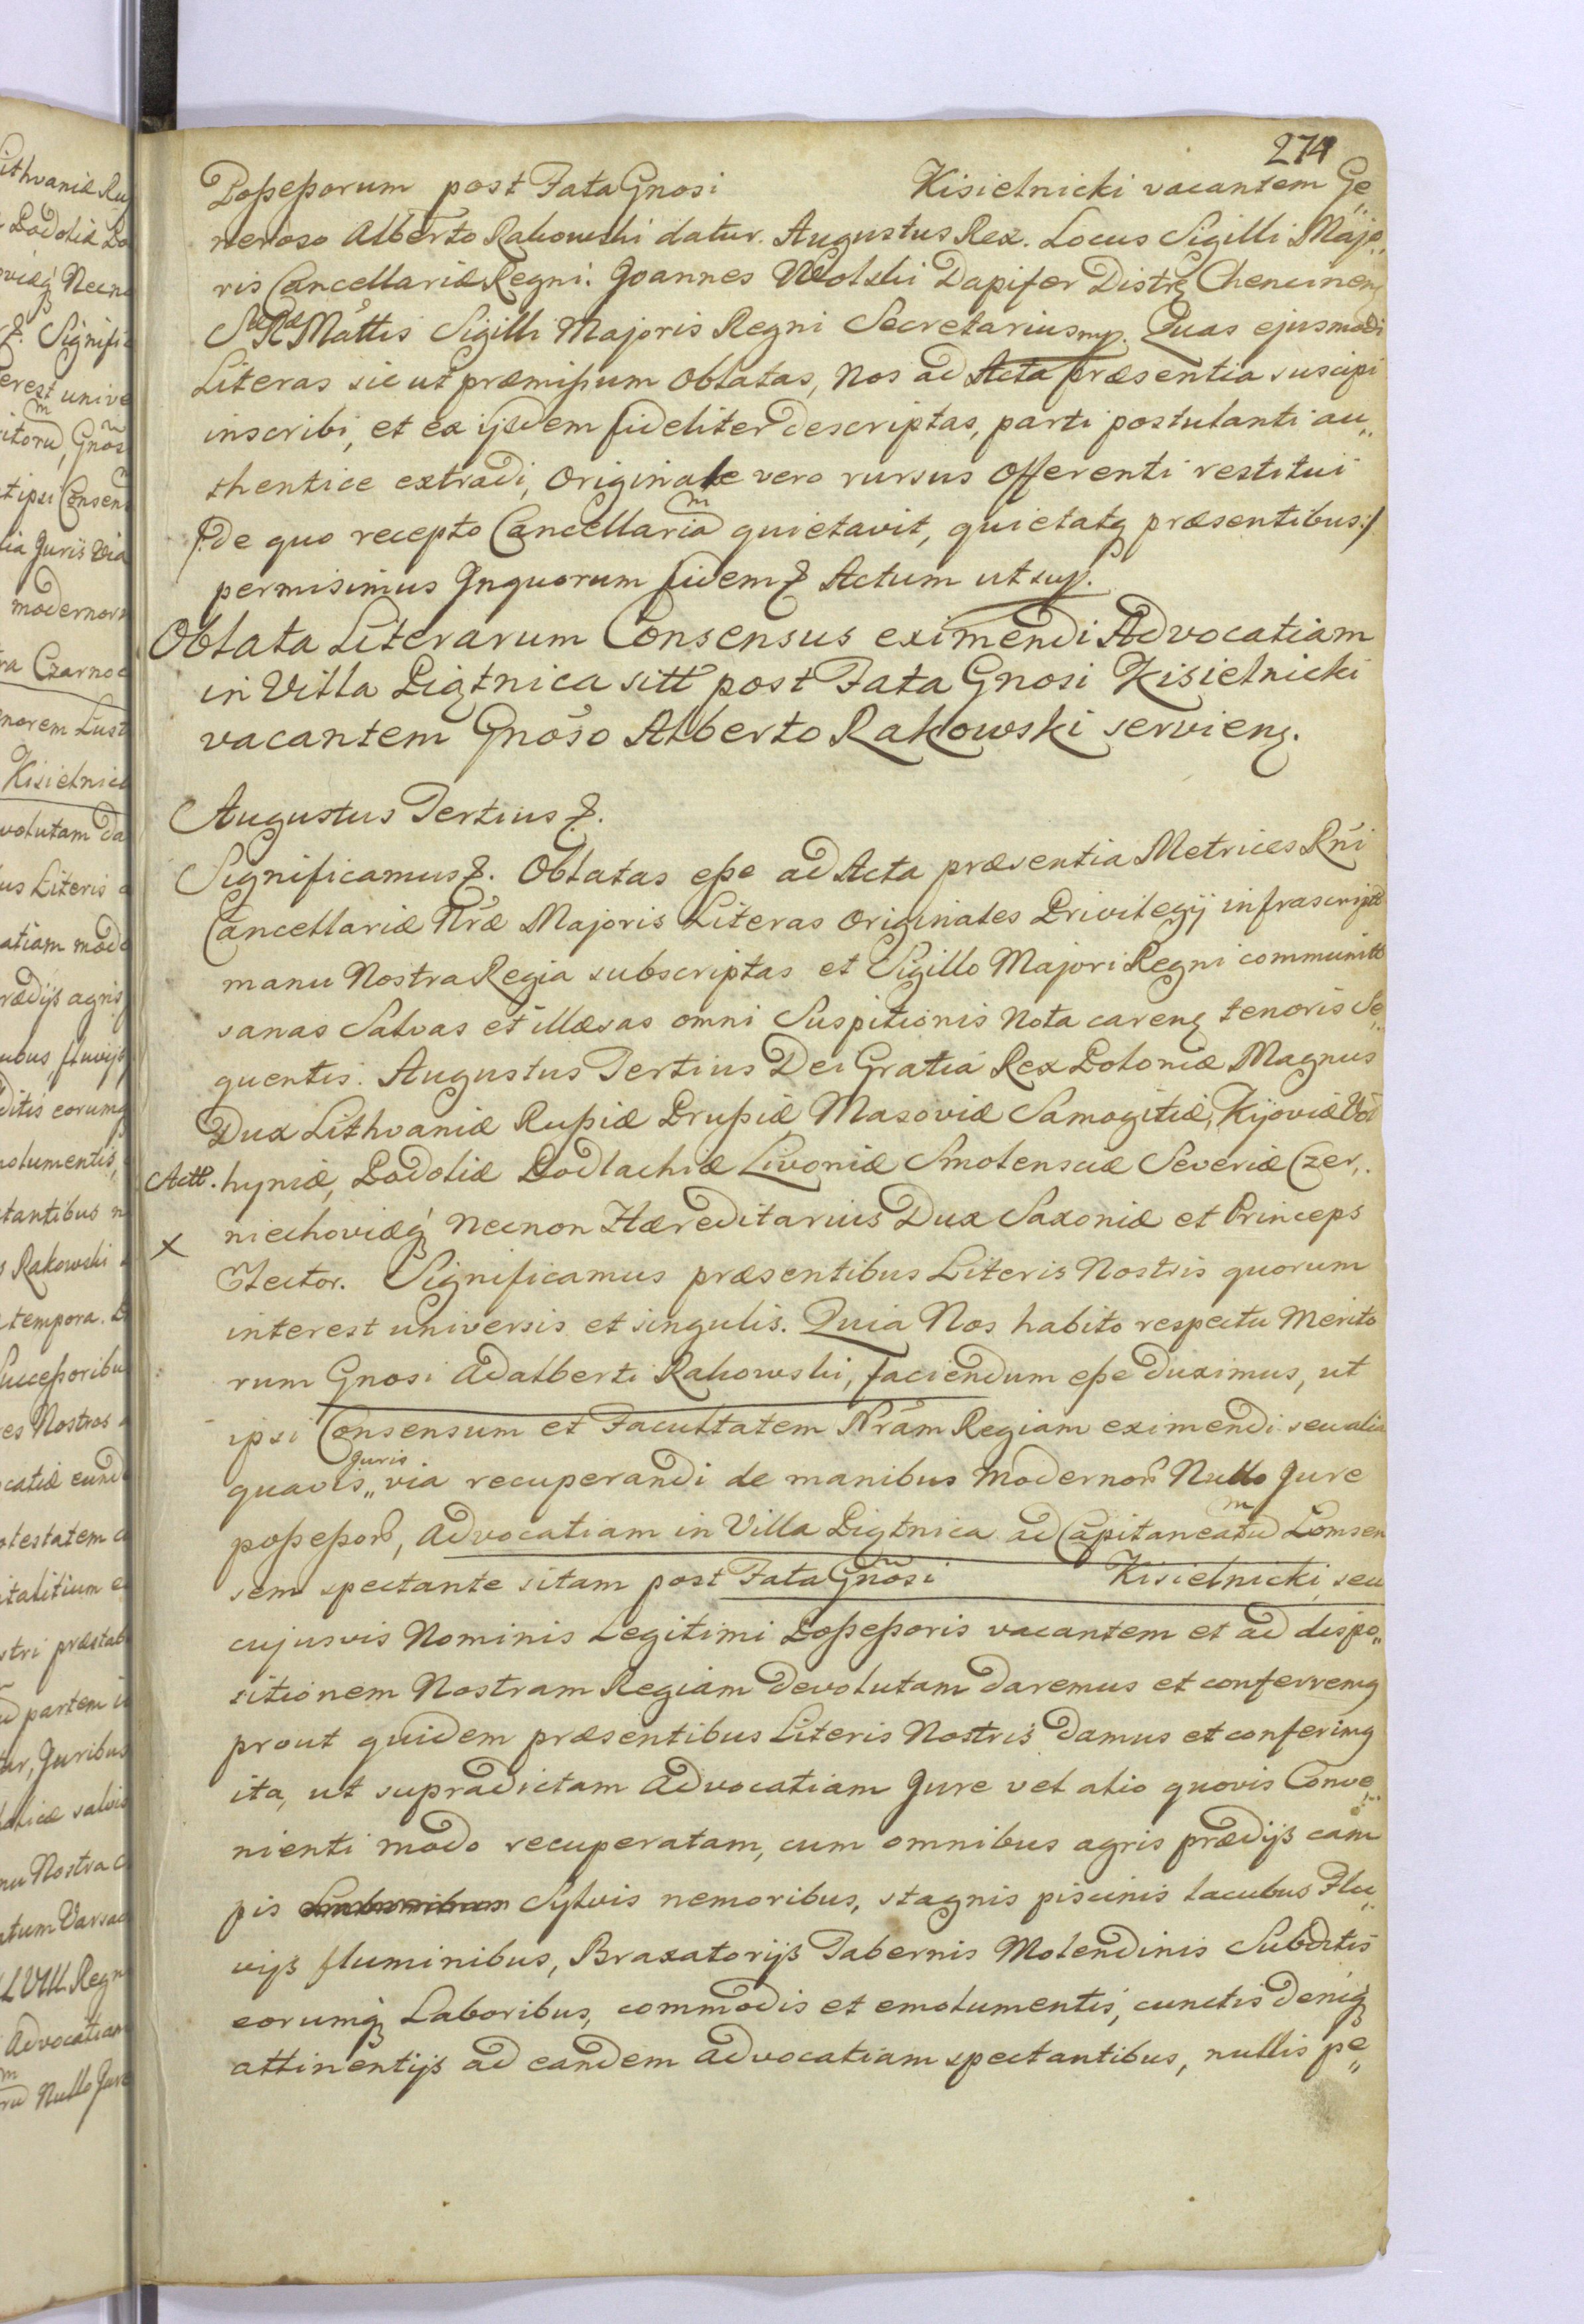 274
Possessorum post Fata Gnosi Kisielnicki vacantem Ge„
neroso Alberto Rakowski datur. Augustus Rex. Locus Sigilli Majo„
ris Cancellariæ Regni. Joannes Wolski Dapifer Distrꝫ Chencinenꝫ
Sæ Ræ Mattis Sigilli Majoris Regni Secretarius mp. Quas ejusmodi
Literas sic ut præmissum Oblatas, Nos ad Acta præsentia suscipi
inscribi, et ex ijsdem fideliter descriptas, parti postulanti au„
thentice extradi, Originale vero rursus Offerenti restitui
/: de quo recepto Cancellariam quietavit, quietatqꝫ præsentibus :/
permisimus Inquorum fidem ꝛ Actum ut sup.
Oblata Literarum Consensus eximendi Advocatiam
in Villa Pigtnica sitt post Fata Gnosi Kisielnicki
vacantem Gnoso Alberto Rakowski servienꝫ.
Augustus Tertius ꝛ.
Significamus ꝛ. Oblatas esse ad Acta præsentia Metrices Rni
Cancellariæ Nræ Majoris Literas Originales Privilegij infrascriptt
manu Nostra Regia subscriptas et Sigillo Majori Regni communitt
sanas Salvas et illæsas omni Suspitionis Nota carenꝫ tenoris Se„
quentis. Augustus Tertius Dei Gratia Rex Poloniæ Magnus
Dux Lithvaniæ Russiæ Prussiæ Masoviæ Samogitiæ, Kijoviæ Vol
Actt. hyniæ, Podoliæ Podlachiæ Livoniæ Smolensciæ Severiæ Czer„
X niechoviæqꝫ Necnon Hæreditarius Dux Saxoniæ et Princeps
Elector. Significamus præsentibus Literis Nostris quorum
interest universis et singulis. Quia Nos habito respectu Merito
rum Gnosi Adalberti Rakowski, faciendum esse duximus, ut
ipsi Consensum et Facultatem Nram Regiam eximendi seu alia
quavis „ Juris via recuperandi de manibus modernorum Nullo Jure
possessorum, Advocatiam in Villa Pigtnica ad Capitaneatum Lomsen
sem spectante sitam post Fata Gnosi Kisielnicki seu
cujusvis Nominis Legitimi Possessoris vacantem et ad dispo„
sitionem Nostram Regiam devolutam daremus et conferremꝫ
prout quidem præsentibus Literis Nostris damus et conferimꝫ
ita, ut supradictam Advocatiam Jure vel alio quovis Conve„
nienti modo recuperatam, cum omnibus agris prædijs cam
pis Sylvis nemoribus, stagnis piscinis lacubus Flu„
vijs fluminibus, Braxatorijs Tabernis Molendinis Subditis
eorumqꝫ Laboribus, commodis et emolumentis, cunctis deniqꝫ
attinentijs ad eandem Advocatiam spectantibus, nullis pe„